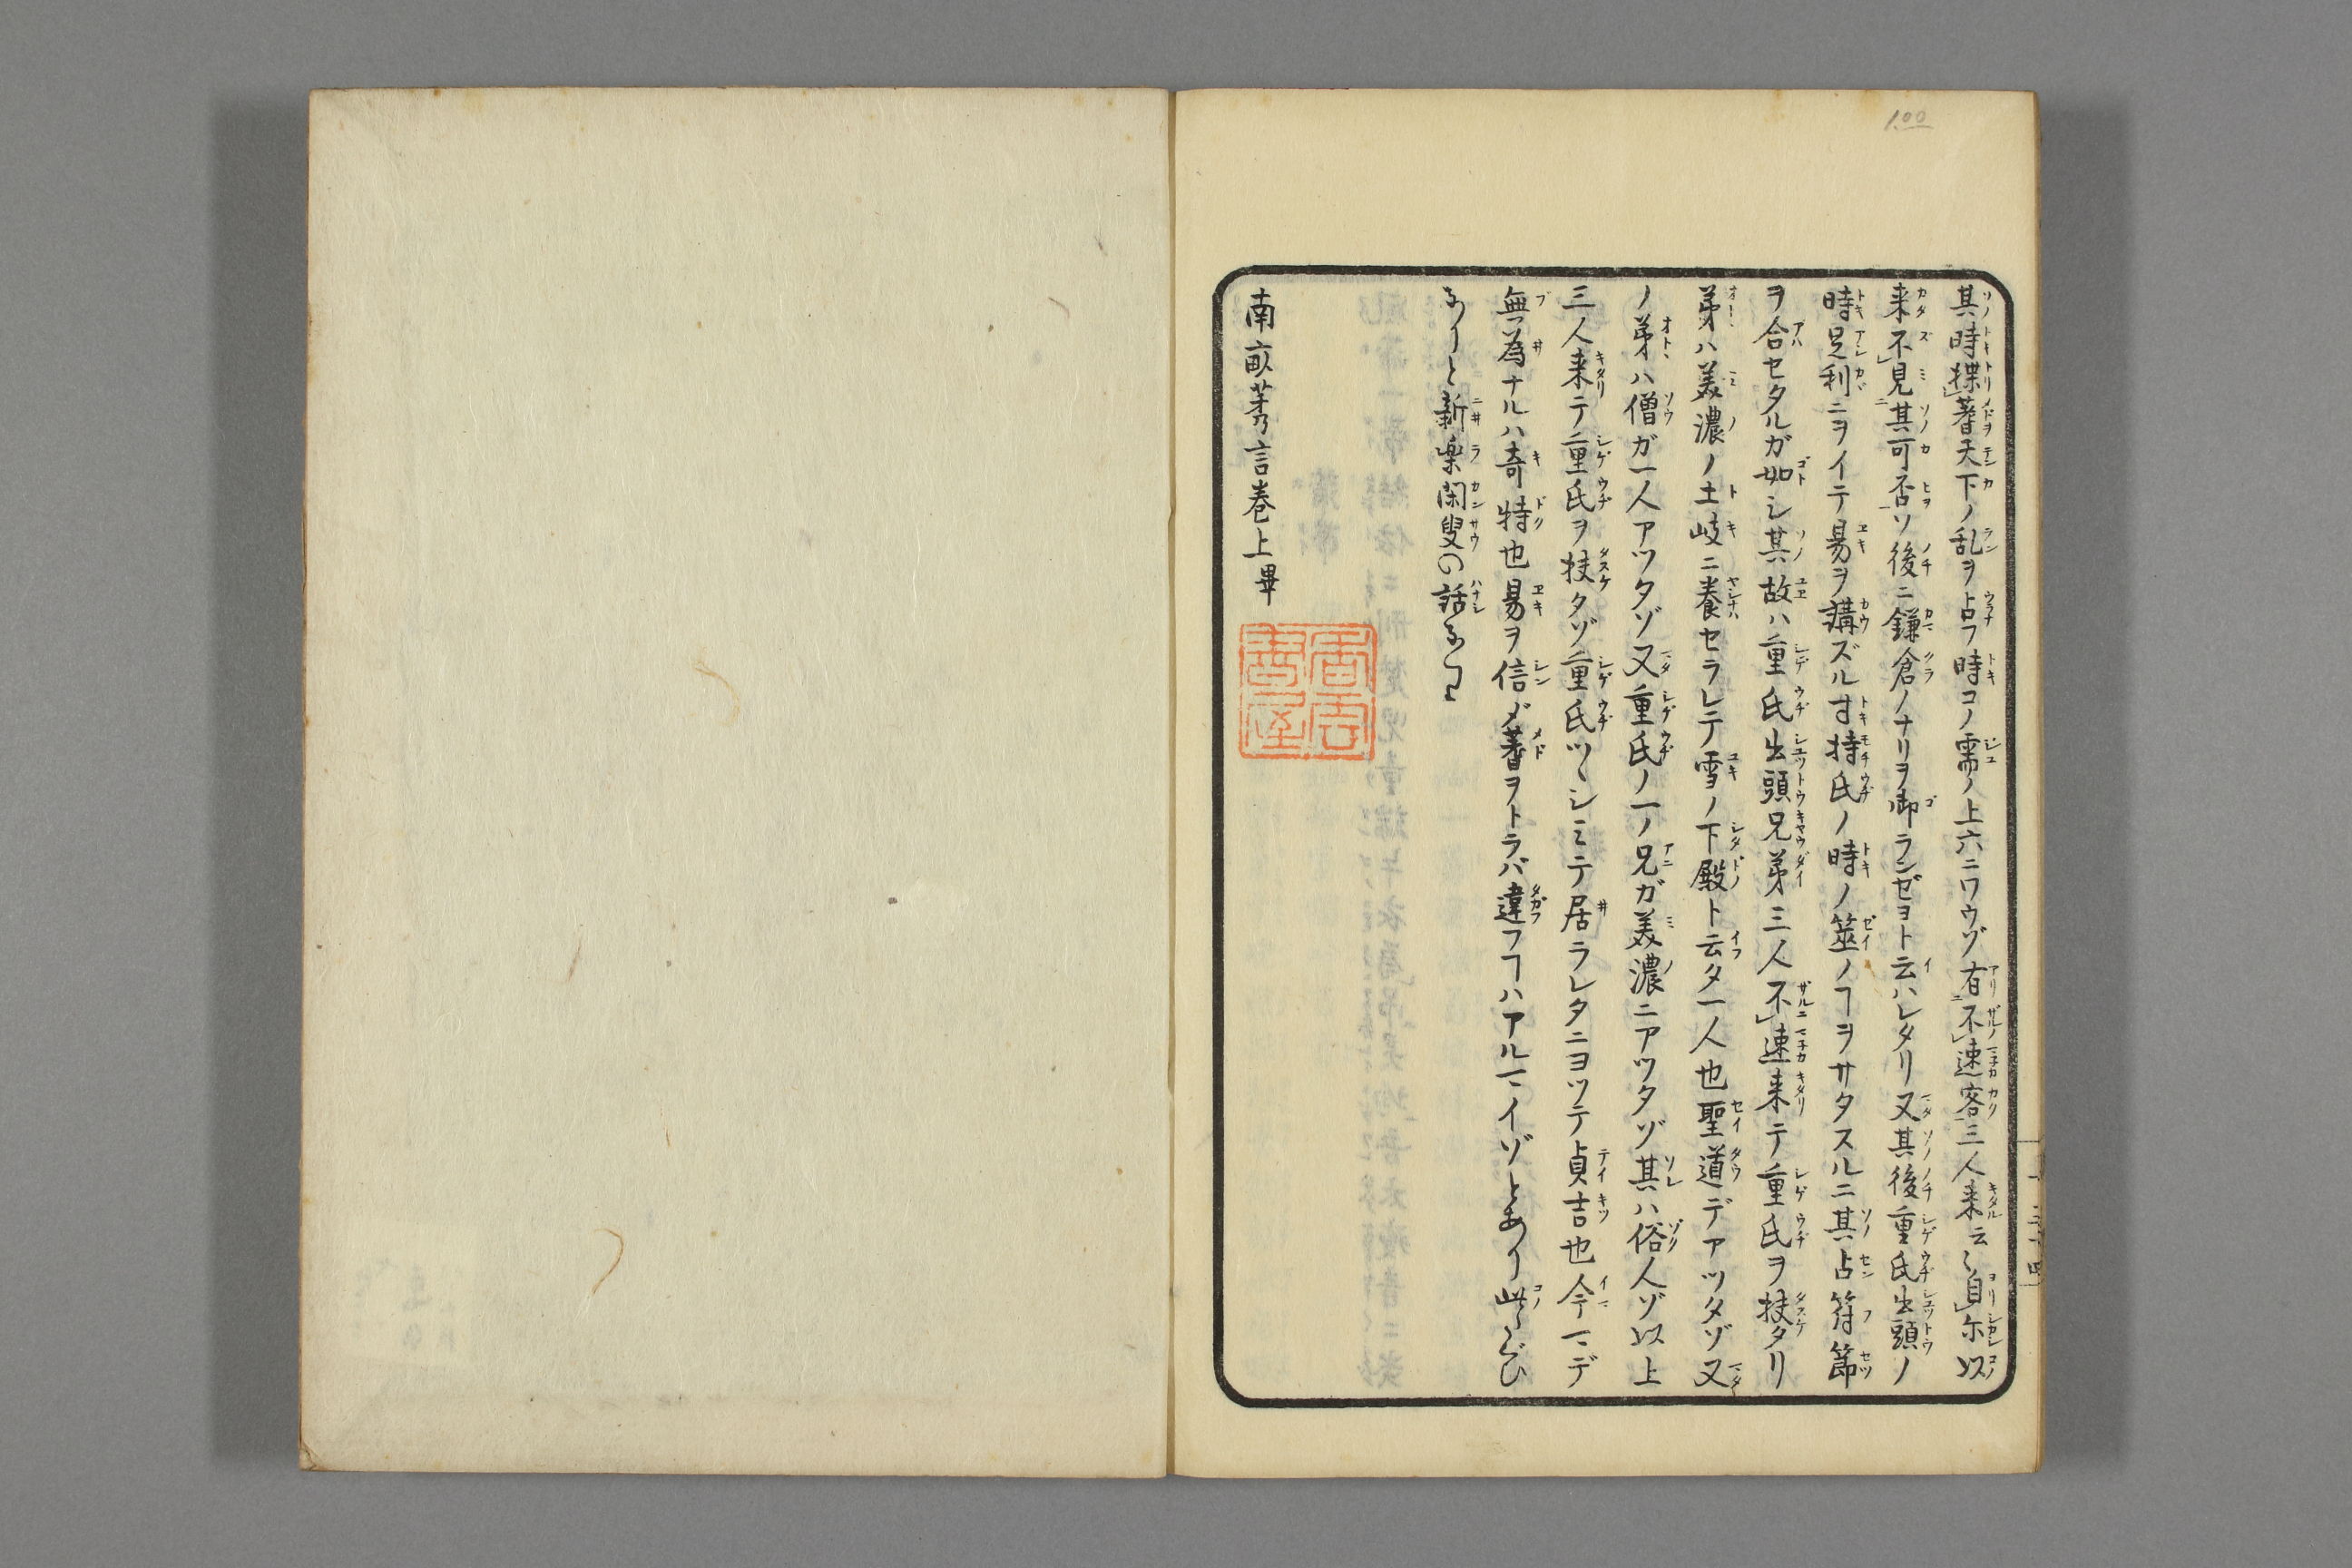 其時揲蓍天下ノ乱ヲ占フ時コノ需ノ上六ニワウゾ有不速客三人来云〻自尓以
来不見其可否ソ後ニ鎌倉ノナリヲ御ランゼヨト云ハレタリ又其後重氏出頭ノ
時足利ニヲイテ易ヲ講ズル寸持氏ノ時ノ筮ノヿヲサタスルニ其占符節
ヲ合セタルガ如シ其故ハ重氏出頭兄弟三人不速来テ重氏ヲ扶タリ
弟ハ美濃ノ土岐ニ養セラレテ雪ノ下殿ト云タ一人也聖道デアツタゾ又
ノ弟ハ僧ガ一人アツタゾ又重氏ノ一ノ兄ガ美濃ニアツタゾ其ハ俗人ゾ以上
三人来テ重氏ヲ扶タゾ重氏ツヽシミテ居ラレタニヨツテ貞吉也今マデ
無為ナルハ奇特也易ヲ信ジ蓍ヲトラバ違フヿハアルマイゾとあり此
ありと新楽閑叟の話なり
南畝莠言巻上畢
1.00